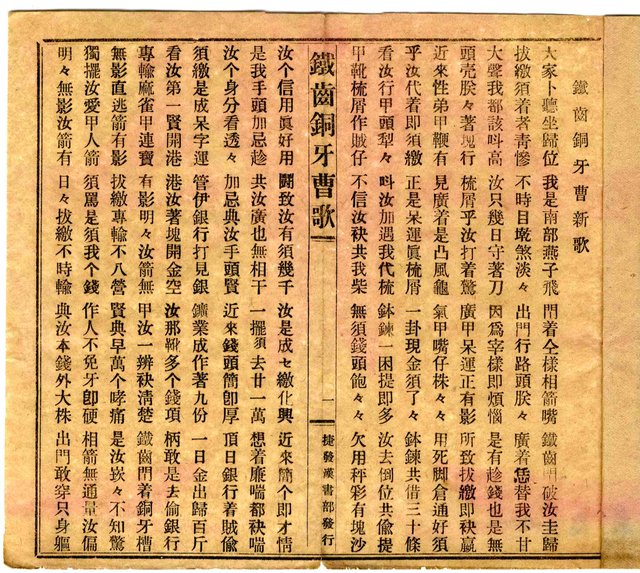 鐵齒銅牙曹新歌
大家卜聽坐歸位 我是南部燕子飛 閂着仝樣相箭嘴 鐵齒閂破汝圭歸
拔繳須着者青慘 不時目墘煞淡々 出門行路頭朕々 廣着恁替我不甘
大聲我都該呌高 汝只幾日守著刀 因爲宰樣即煩惱 是有趁錢也是無
頭壳朕々著塊行 梳屑乎汝打着驚 廣甲呆運正有影 所致拔繳即袂贏
近來性弟甲鞭有 見廣着是凸風龜 氣甲嘴仔株々々 用死脚倉通好須
乎汝代着即須繳 正是呆運眞梳屑 一卦現金須了々 鉢鍊共借三十條
看汝行甲頭犁々 呌汝加遇我代梳 鉢鍊一困提即多 汝去倒位共偸提
甲靴梳屑作賊仔 不信汝袂共我柴 無須錢頭飽々々 欠用秤彩有塊沙
鐵齒銅牙曹歌 一 捷發漢書部發行
汝个信用眞好用 鬪致汝有須幾千 汝是成乜繳化興 近來簡个即才情
是我手頭加忌趁 共汝廣也無相干 一擺須去廿一萬 想着廉喘都袂喘
汝个身分看透々 加忌典汝手頭賢 近來錢頭簡卽厚 頂日銀行着賊偸
須繳是成呆字運 管伊銀行打見銀 鑛業成作著九份 一日金出歸百斤
看汝第一賢開港 港汝著塊開金空 汝那靴多个錢項 柄敢是去偸銀行
專輸麻雀甲連寶 有影明々汝箭無 甲汝一辨袂清楚 鐵齒閂着銅牙槽
無影直逃箭有影 拔繳專輸不八營 賢典早萬个哮痛 是汝嵌々不知驚
獨擺汝愛甲人箭 須罵是須我个錢 作人不免牙卽硬 相箭無通量汝偏
明々無影汝箭有 日々拔繳不時輸 典汝本錢外大株 出門敢穿只身軀